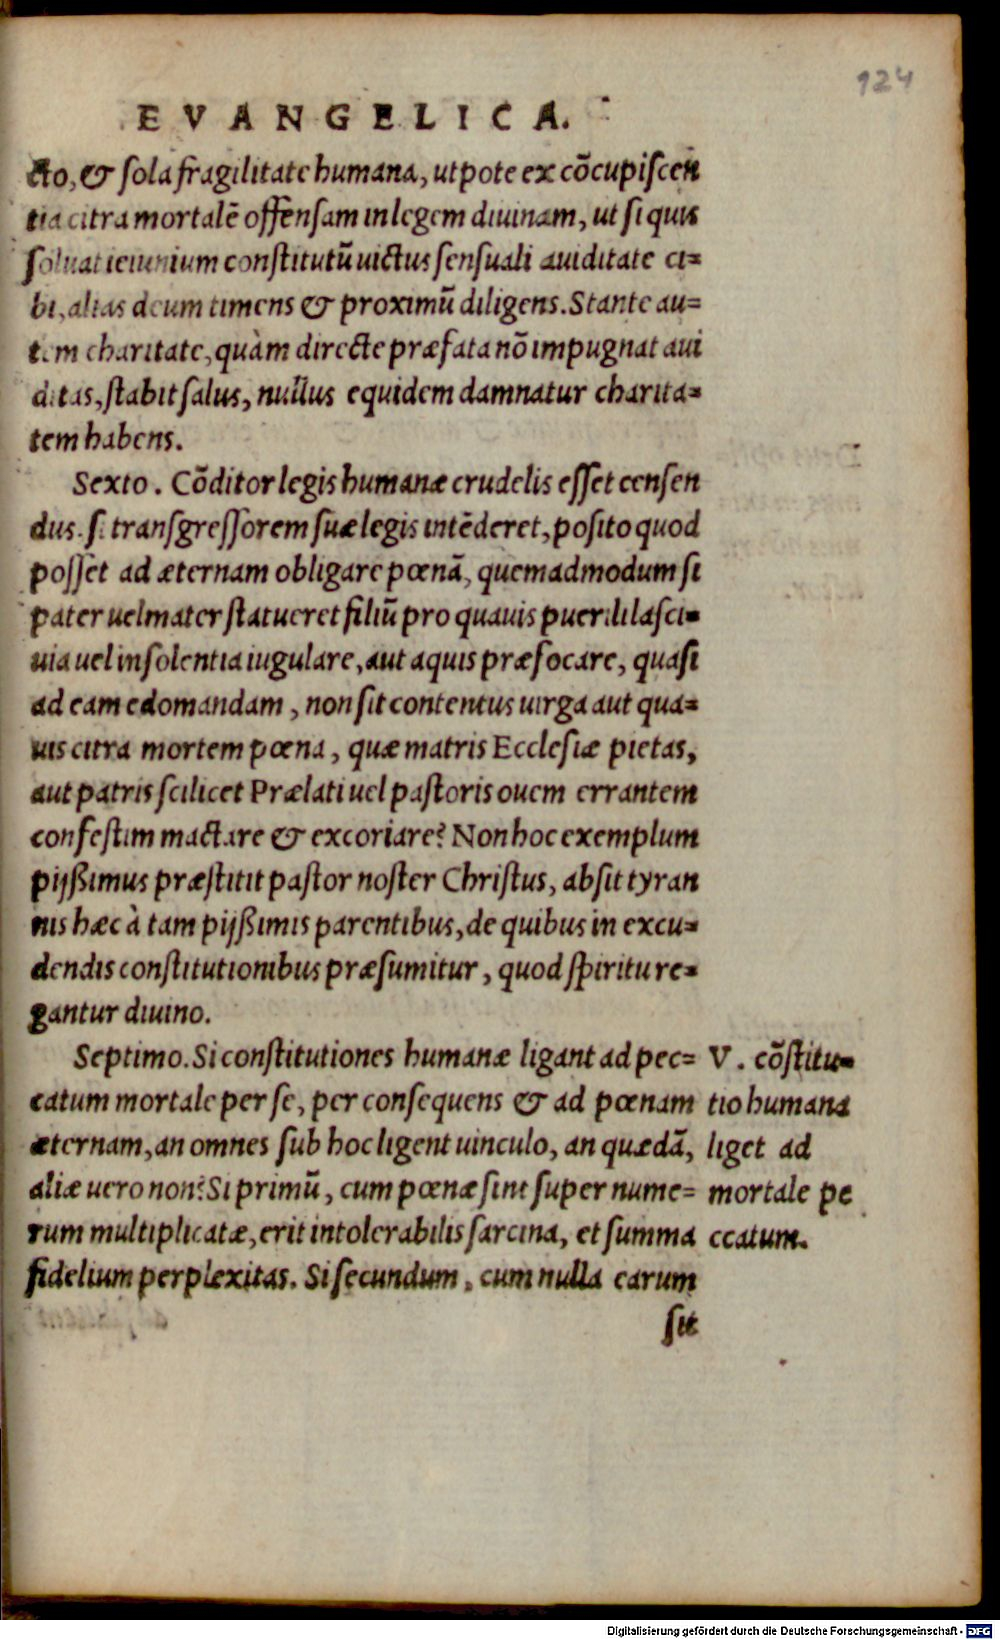 124
EVANGELICA.
cto, & sola fragilitate humana, utpote ex cõcupiscen
tia citra mortalẽ offensam in legem diuinam, ut si quis
soluat ieiunium constitutũ uictus sensuali auiditate ci=
bi, alias deum timens & proximũ diligens. Stante au=
tem charitate, quàm directe præfata nõ impugnat aui
ditas, stabit salus, nullus equidem damnatur charita=
tem habens.
Sexto. Cõditor legis humanæ crudelis esset censen
dus. si transgressorem suæ legis intẽderet, posito quod
posset ad æternam obligare pœnã, quemadmodum si
pater uel mater statueret filiũ pro quauis puerili lasci=
uia uel insolentia iugulare, aut aquis præfocare, quasi
ad eam edomandam, non sit contentus uirga aut qua=
uis citra mortem pœna, quæ matris Ecclesiæ pietas,
aut patris scilicet Prælati uel pastoris ouem errantem
confestim mactare & excoriare? Non hoc exemplum
pijßimus præstitit pastor noster Christus, absit tyran
nis hæc à tam pijßimis parentibus, de quibus in excu=
dendis constitutionibus præsumitur, quod spiritu re=
gantur diuino.
Septimo. Si constitutiones humanæ ligant ad pec=
catum mortale per se, per consequens & ad pœnam
æternam, an omnes sub hoc ligent uinculo, an quædã,
aliæ uero non? Si primũ, cum pœnæ sint super nume=
rum multiplicatæ, erit intolerabilis sarcina, et summa
fidelium perplexitas. Si secundum, cum nulla earum
sit
V. cõstitu=
tio humana
liget ad
mortale pe
ccatum.
Digitalisierung gefördert durch die Deutsche Forschungsgemeinschaft - DFG